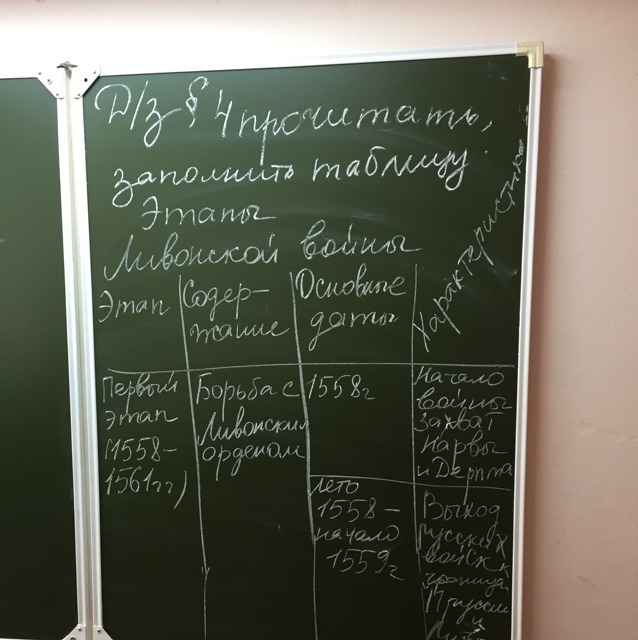 Д/з § 4 прочитать,
заполнить таблицу.
Этапы
Ливонской войны
Этап
Содер-
жание
Основные
даты
Характеристика
Первый
этап
(1558–
1561гг)
Борьба с
Ливонским
орденом
1558г
Начало
войны
Захват
Нарвы
и Дерпта
лето
1558–
начало
1559г
Выход
русских
войск к
границе
Пруссии
и